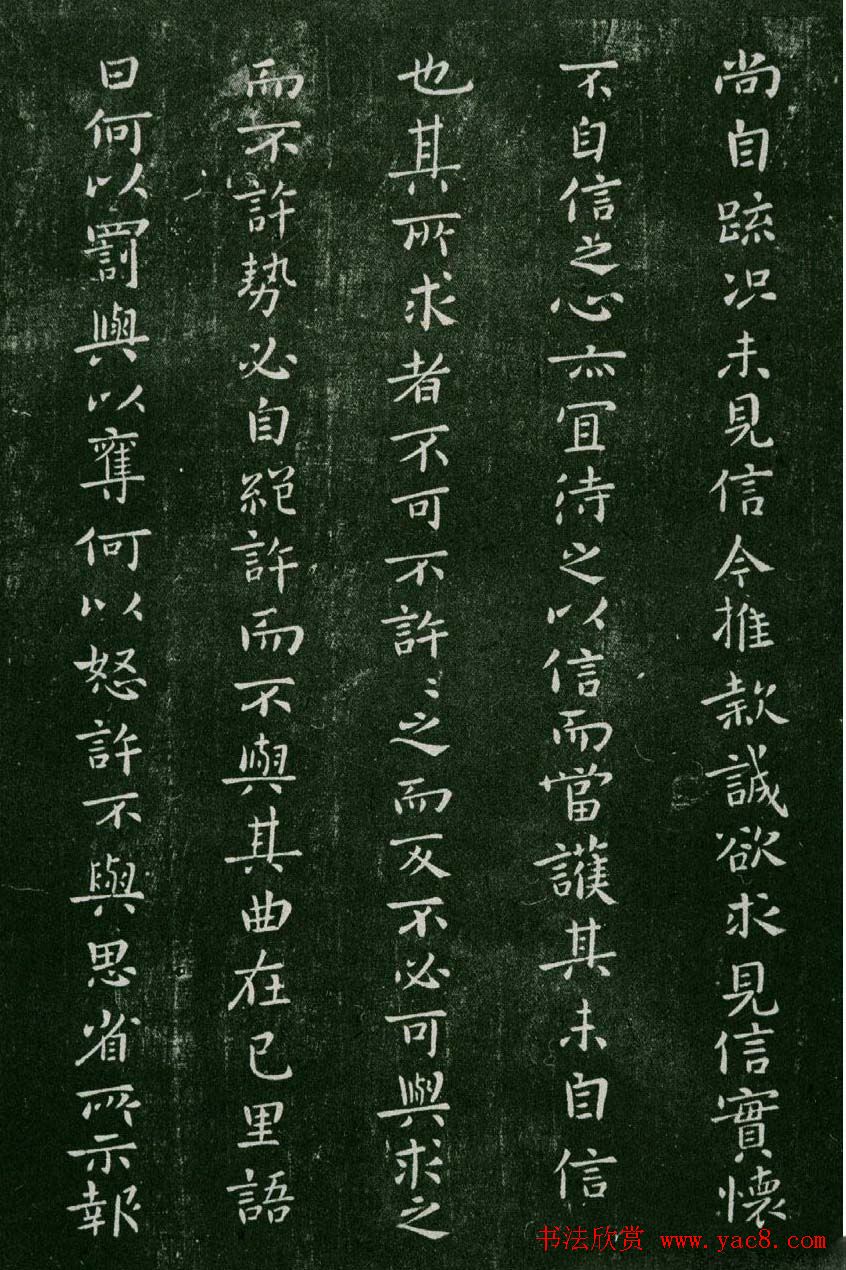 尚自疏况未見信今推款誠欲求見信實懷
不自信之心亦宜待之以信而當護其未自信
也其所求者不可不許〻之而反不必可與求之
而不許勢必自絕許而不與其曲在已里語
曰何以罰與以奪何以怒許不與思省所示報
书法欣赏 www.yac8.com